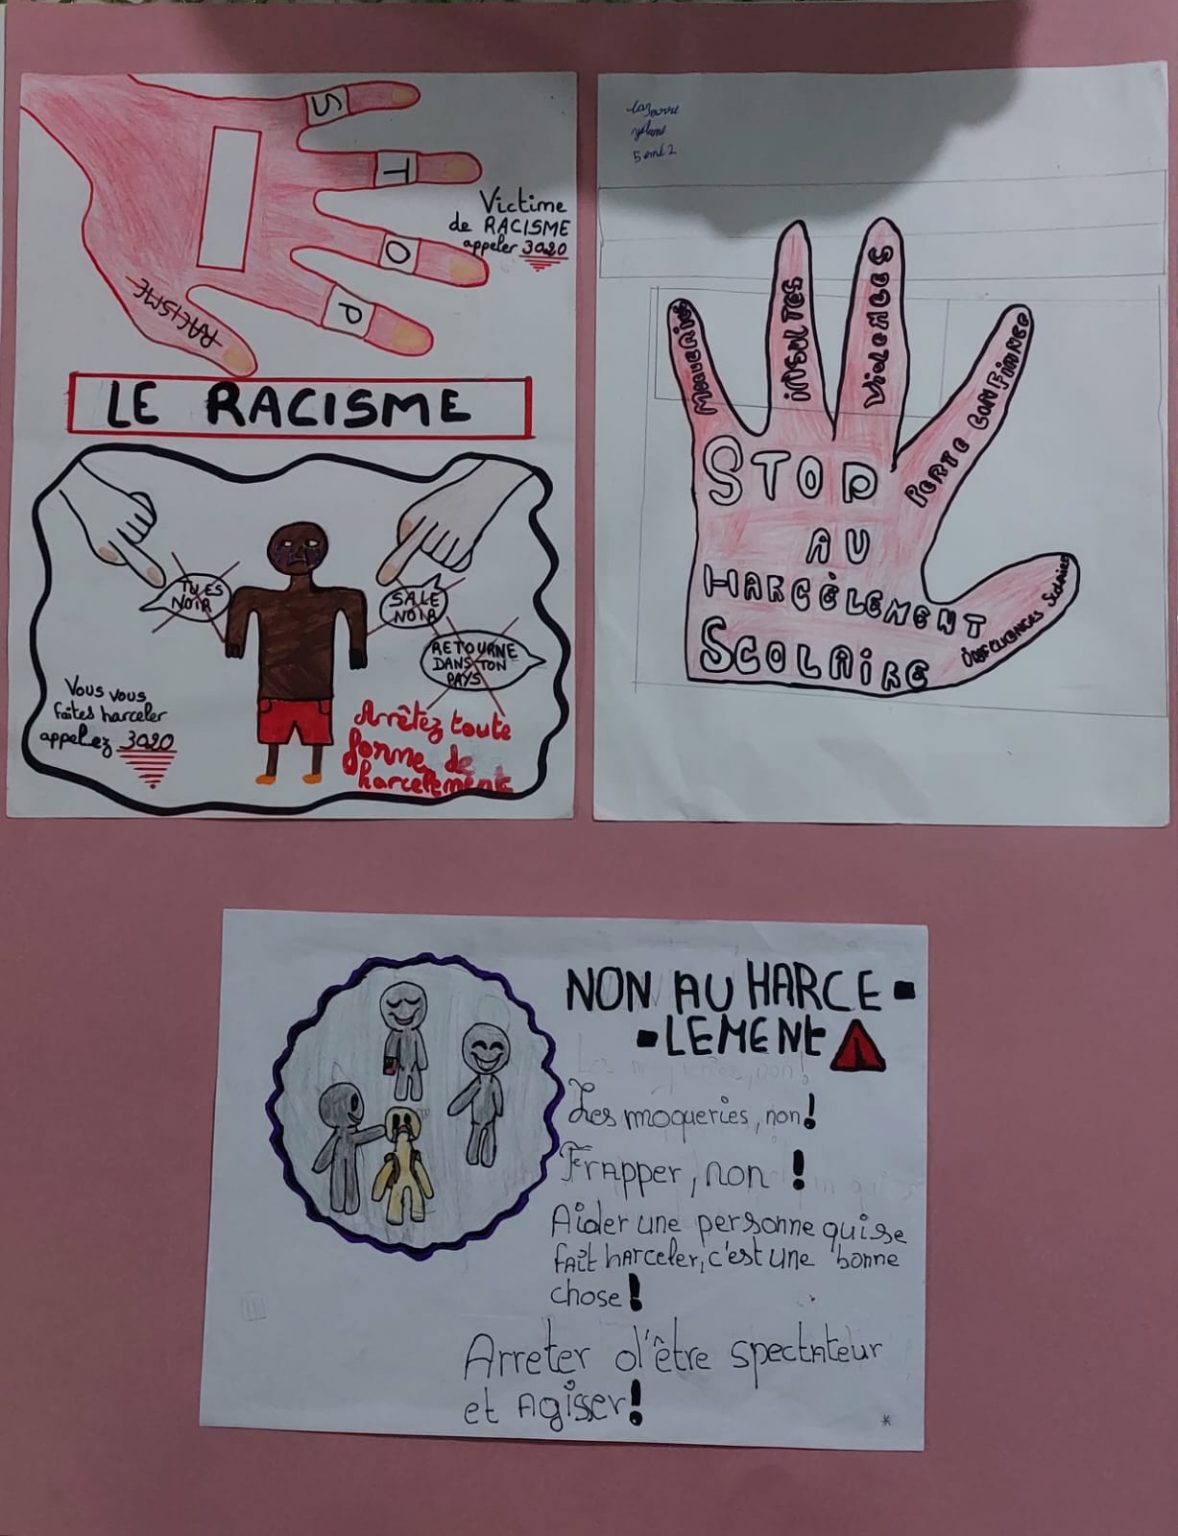 S
T
O
P
RACISME
Victime
de RACISME
appeler 3020
LE RACISME
TU ES
NOIR
SALE
NOIR
RETOURNE
DANS TON
PAYS
Vous vous
faites harceler
appelez 3020
Arrêtez toute
forme de
harcelements
5 eme 2
INSULTES
PERTE CONFIANCE
STOP
AU
HARCÈLEMENT
SCOLAIRE
NON AU HARCE -
- LEMENt
Les moqueries, non!
Frapper, non !
Aider une personne qui se
fait harceler, c'est une bonne
chose!
Arreter d'être spectateur
et Agisser!
*